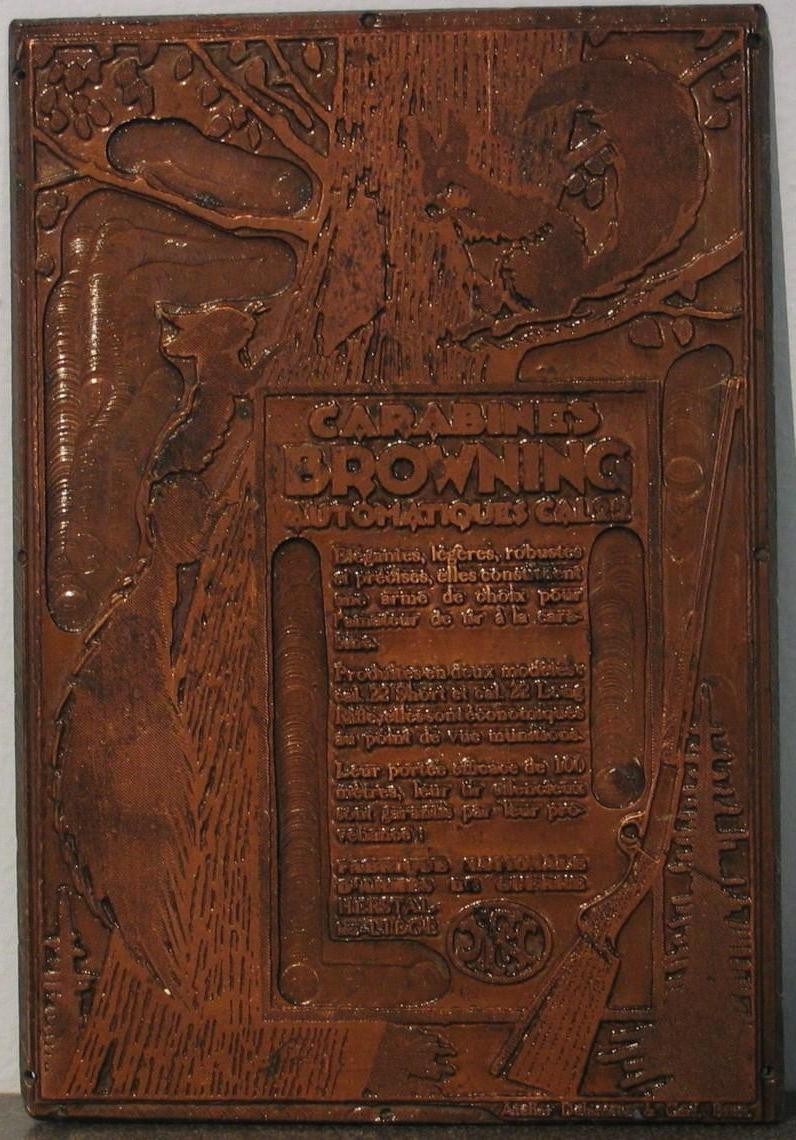 CARABINES
BROWNING
AUTOMATIQUES CAL. 22
Elégantes, légères, robustes
et précises, elles constituent
une arme de choix pour
l'amateur de tir à la cara-
bine.
Produites en deux modèles :
cal. 22 Short et cal. 22 Long
Rifle, elles sont économiques
au point de vue munitions.
Leur portée efficace de 100
mètres, leur tir silencieux
sont garantis par leur pro-
venance :
FABRIQUE NATIONALE
D'ARMES DE GUERRE
HERSTAL-
LEZ-LIÉGE
FN
Atelier &